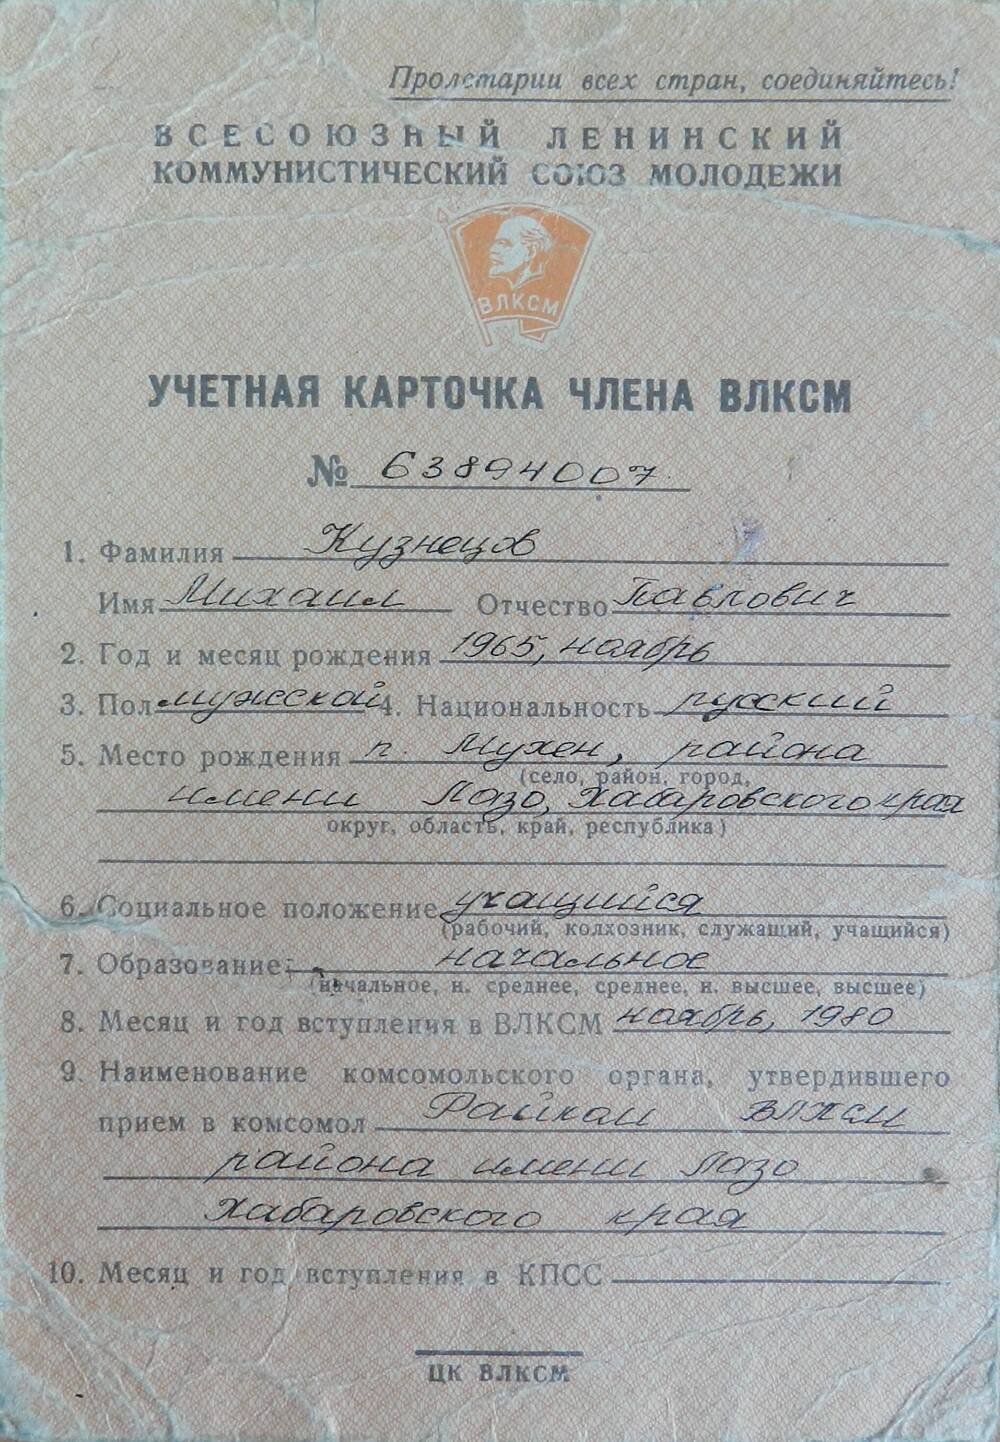 Пролетарии всех стран, соединяйтесь!
ВСЕСОЮЗНЫЙ ЛЕНИНСКИЙ
КОММУНИСТИЧЕСКИЙ СОЮЗ МОЛОДЕЖИ
ВЛКСМ
УЧЕТНАЯ КАРТОЧКА ЧЛЕНА ВЛКСМ
№ 63894007
1. Фамилия Кузнецов
Имя Михаил Отчество Павлович
2. Год и месяц рождения 1965, ноябрь
3. Пол мужской 4. Национальность русский
5. Место рождения п. Мухен, района
(село, район, город,
имени Лазо, Хабаровского края
округ, область, край, республика)
6. Социальное положение учащийся
(рабочий, колхозник, служащий, учащийся)
7. Образование начальное
(начальное, н. среднее, среднее, н. высшее, высшее)
8. Месяц и год вступления в ВЛКСМ ноябрь, 1980
9. Наименование комсомольского органа, утвердившего
прием в комсомол Райком ВЛКСМ
района имени Лазо
Хабаровского края
10. Месяц и год вступления в КПСС
ЦК ВЛКСМ